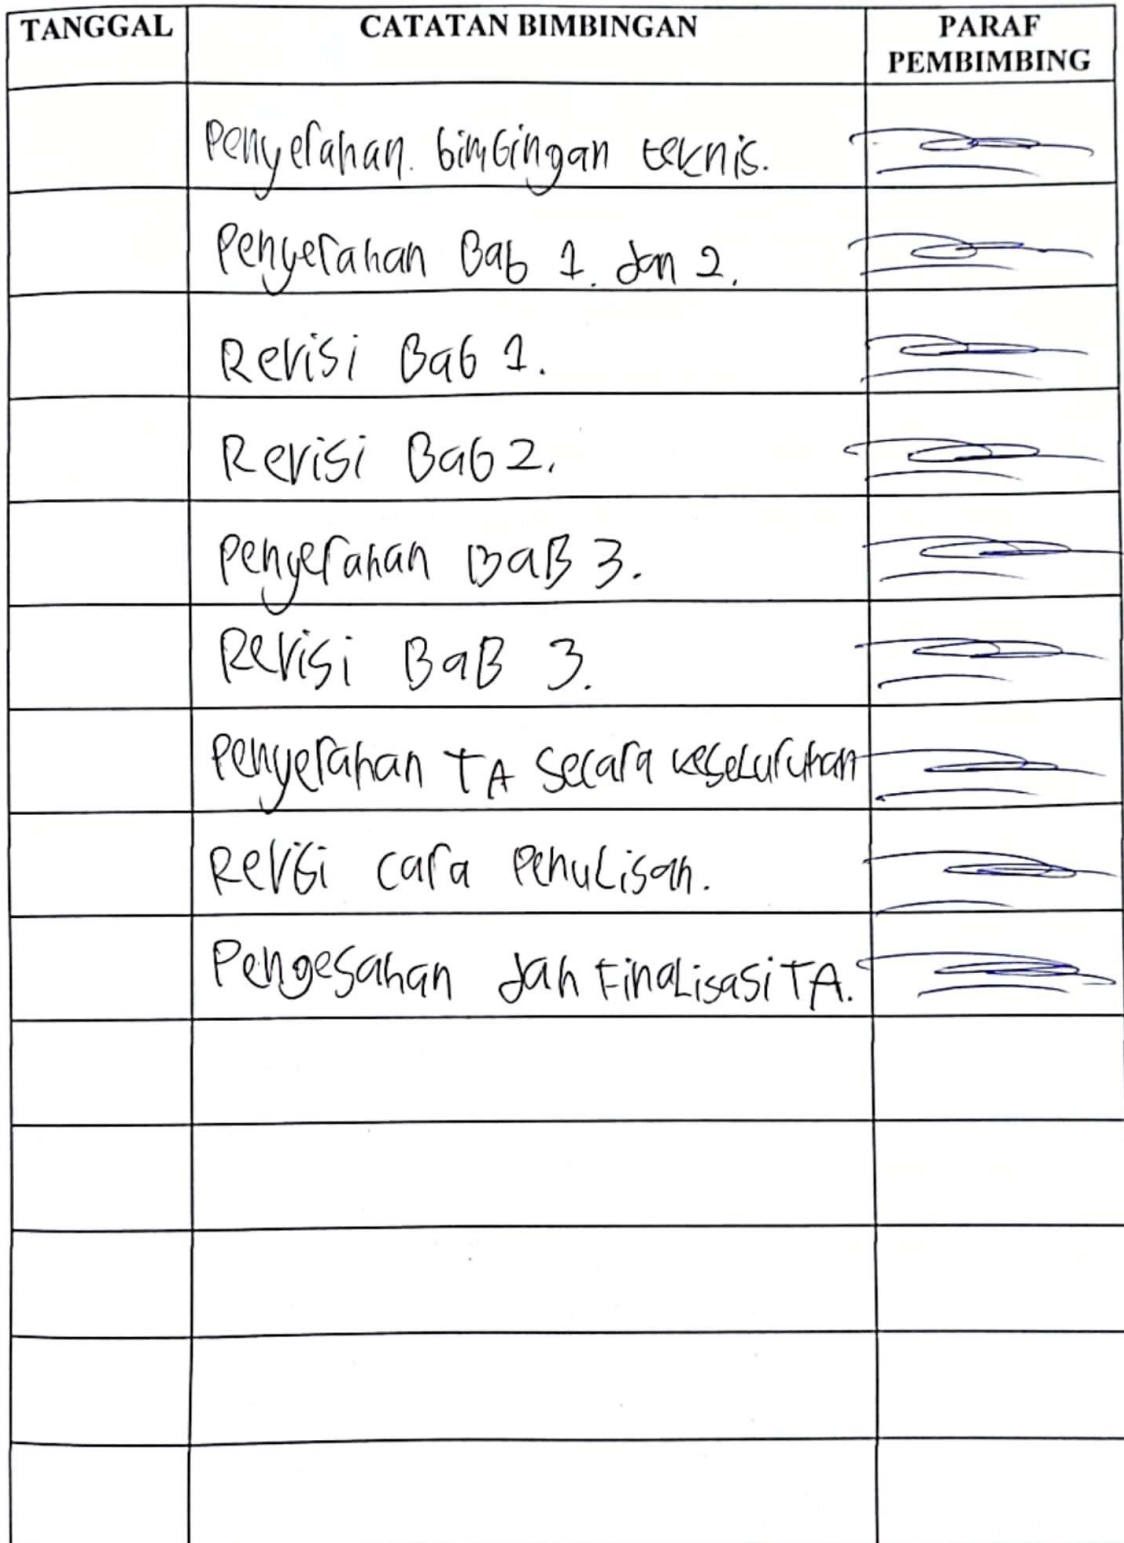 TANGGAL CATATAN BIMBINGAN PARAF PEMBIMBING
Penyerahan bimbingan teknis.
Penyerahan Bab 1. dan 2.
Revisi Bab 1.
Revisi Bab 2.
Penyerahan BaB 3.
Revisi BaB 3.
Penyerahan TA secara keseluruhan
Revisi cara Penulisan.
Pengesahan dan Finalisasi TA.